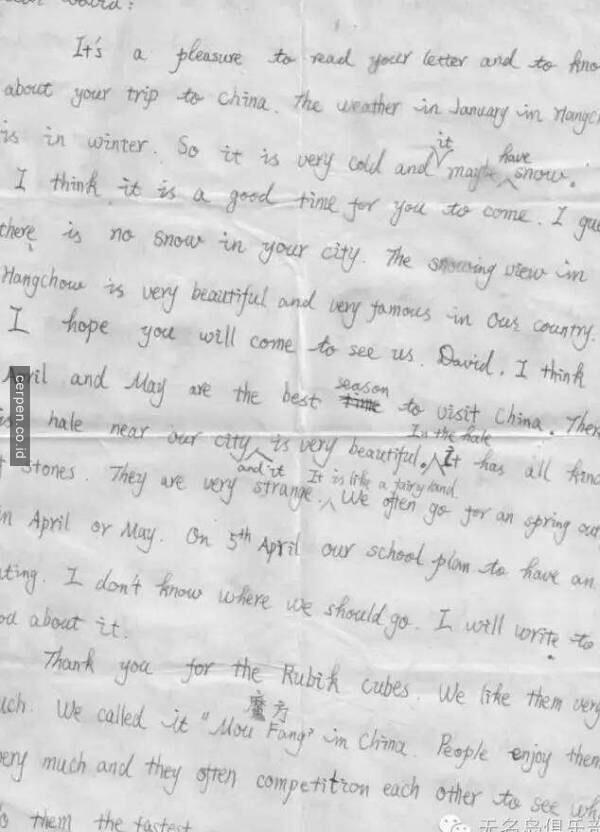 David:
It's a pleasure to read your letter and to kno
about your trip to China. The weather in January in Hangc
is in winter. So it is very cold and it maybe have snow.
I think it is a good time for you to come. I gue
there is no snow in your city. The snowing view in
Hangchow is very beautiful and very famous in our country.
I hope you will come to see us. David, I think
April and May are the best time season to visit China. Ther
is hale near our city and it is very beautiful. In the hale It has all kind
stones. They are very strange. It is like a fairy land. We often go for an spring out
in April or May. On 5th April our school plan to have an
ting. I don't know where we should go. I will write to
ou about it.
Thank you for the Rubik cubes. We like them very
uch. We called it "Mou Fang" 魔方 in China. People enjoy them
very much and they often competition each other to see wh
them the fastest
cerpen.co.id
无名岛俱乐部